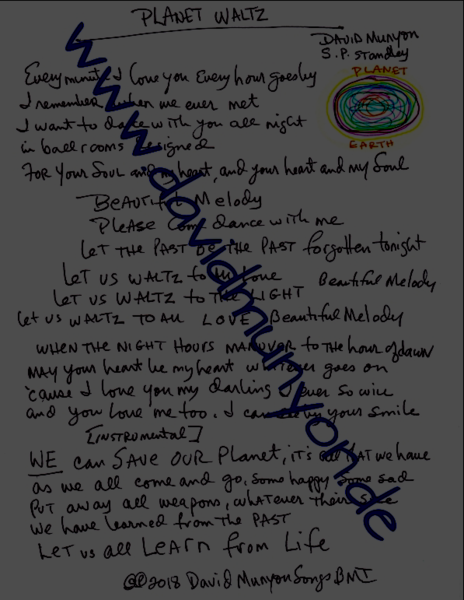 PLANET WALTZ
DAVID MUNYON
S.P. Standley
PLANET
EARTH
Every minute I love you Every hour goes by
I remember when we ever met
I want to dance with you all night
in ballrooms designed
FOR YOUR SOUL and my heart, and your heart and my Soul
BEAUTIFUL MELODY
PLEASE Come dance with me
LET THE PAST BE THE PAST forgotten tonight
LET US WALTZ to the one Beautiful Melody
LET US WALTZ to THE LIGHT
Let us WALTZ TO ALL LOVE Beautiful Melody
WHEN THE NIGHT HOURS to THE hour of dawn
MAY your heart be my heart whatever goes on
'cause I love you my darling I ever so will
and you love me too. I by your smile
[INSTRUMENTAL]
WE can SAVE OUR Planet, it's all THAT we have
as we all come and go, some happy some sad
PUT away all weapons, WHATEVER their
We have learned from THE PAST
LET us all LEARN from LIFE
©℗2018 David MunyonSongs BMI
www.davidmunyon.de